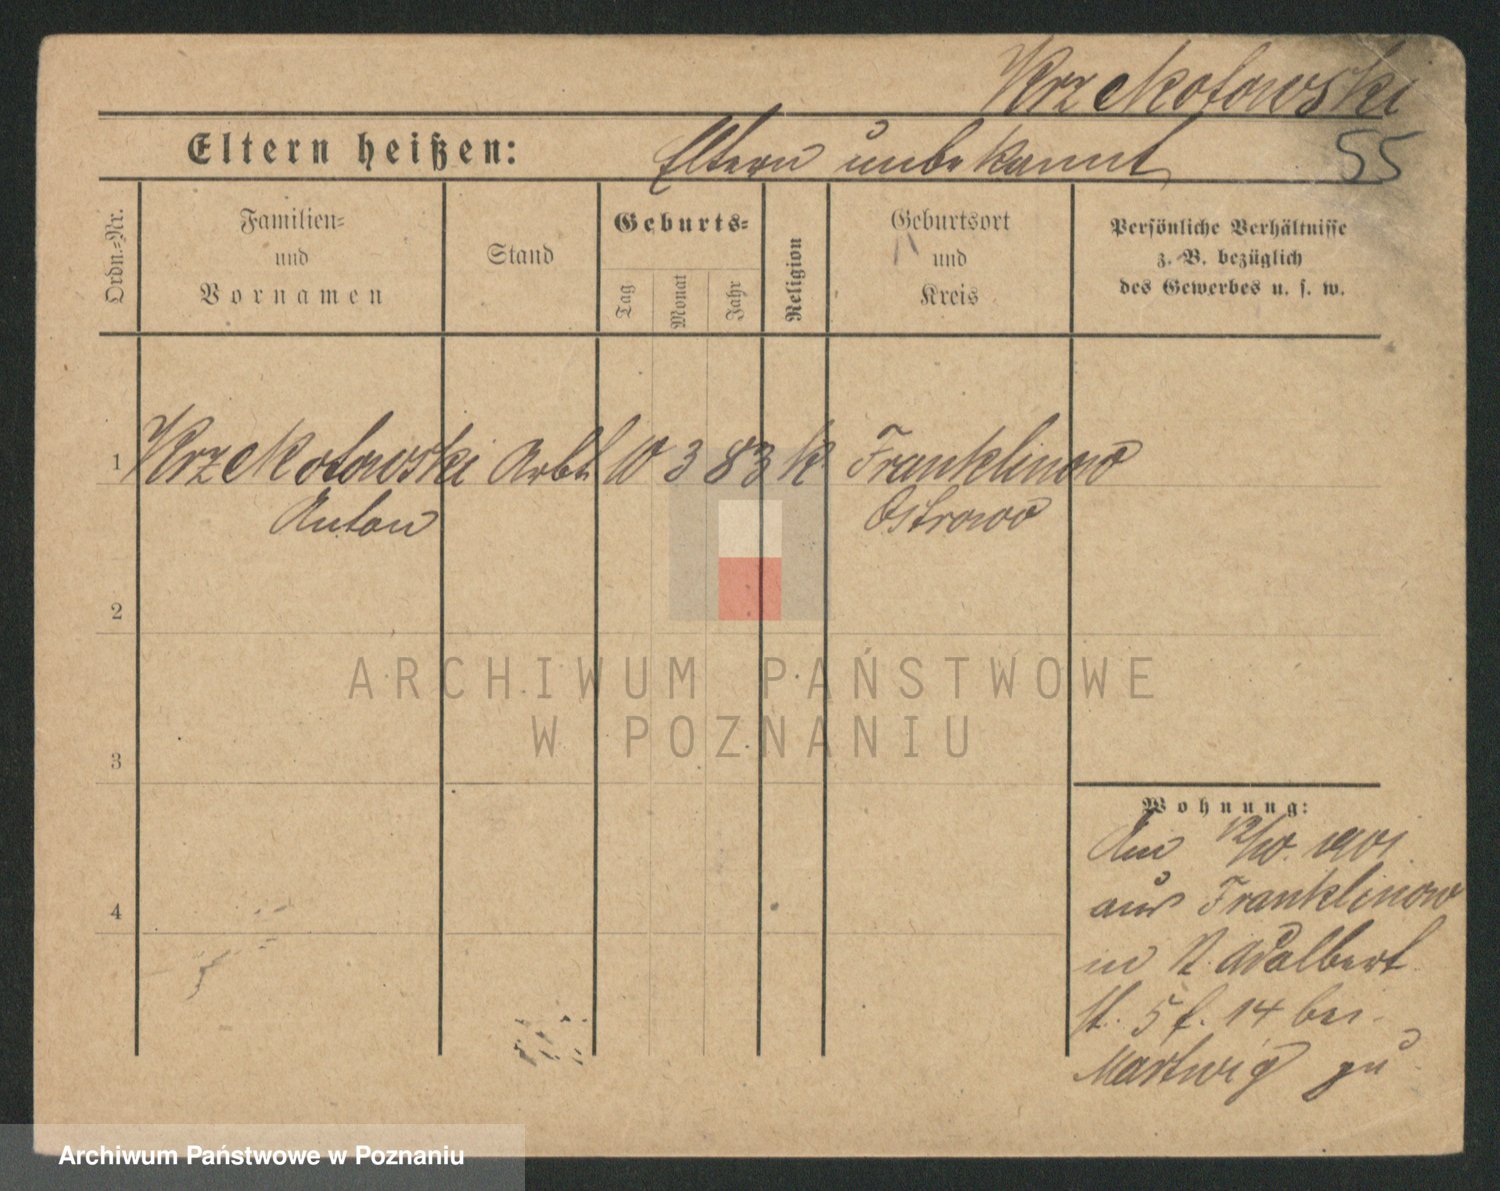 Krzekotowski
Eltern heißen: Eltern unbekannt
55
Ordn.=Nr.
Familien=
und
Vornamen
Stand
Geburts=
Tag
Monat
Jahr
Religion
Geburtsort
und
Kreis
Persönliche Verhältnisse
z. B. bezüglich
des Gewerbes u. s. w.
1 Krzekotowski Arbt. 10 3 83 k. Franklinowo
Anton Ostrowo
2
ARCHIWUM PAŃSTWOWE
W POZNANIU
3
Wohnung:
Am 12/10. 1901
aus Franklinowo
in St. Adalbert
5 14 bei
Hartwig zu
4
Archiwum Państwowe w Poznaniu